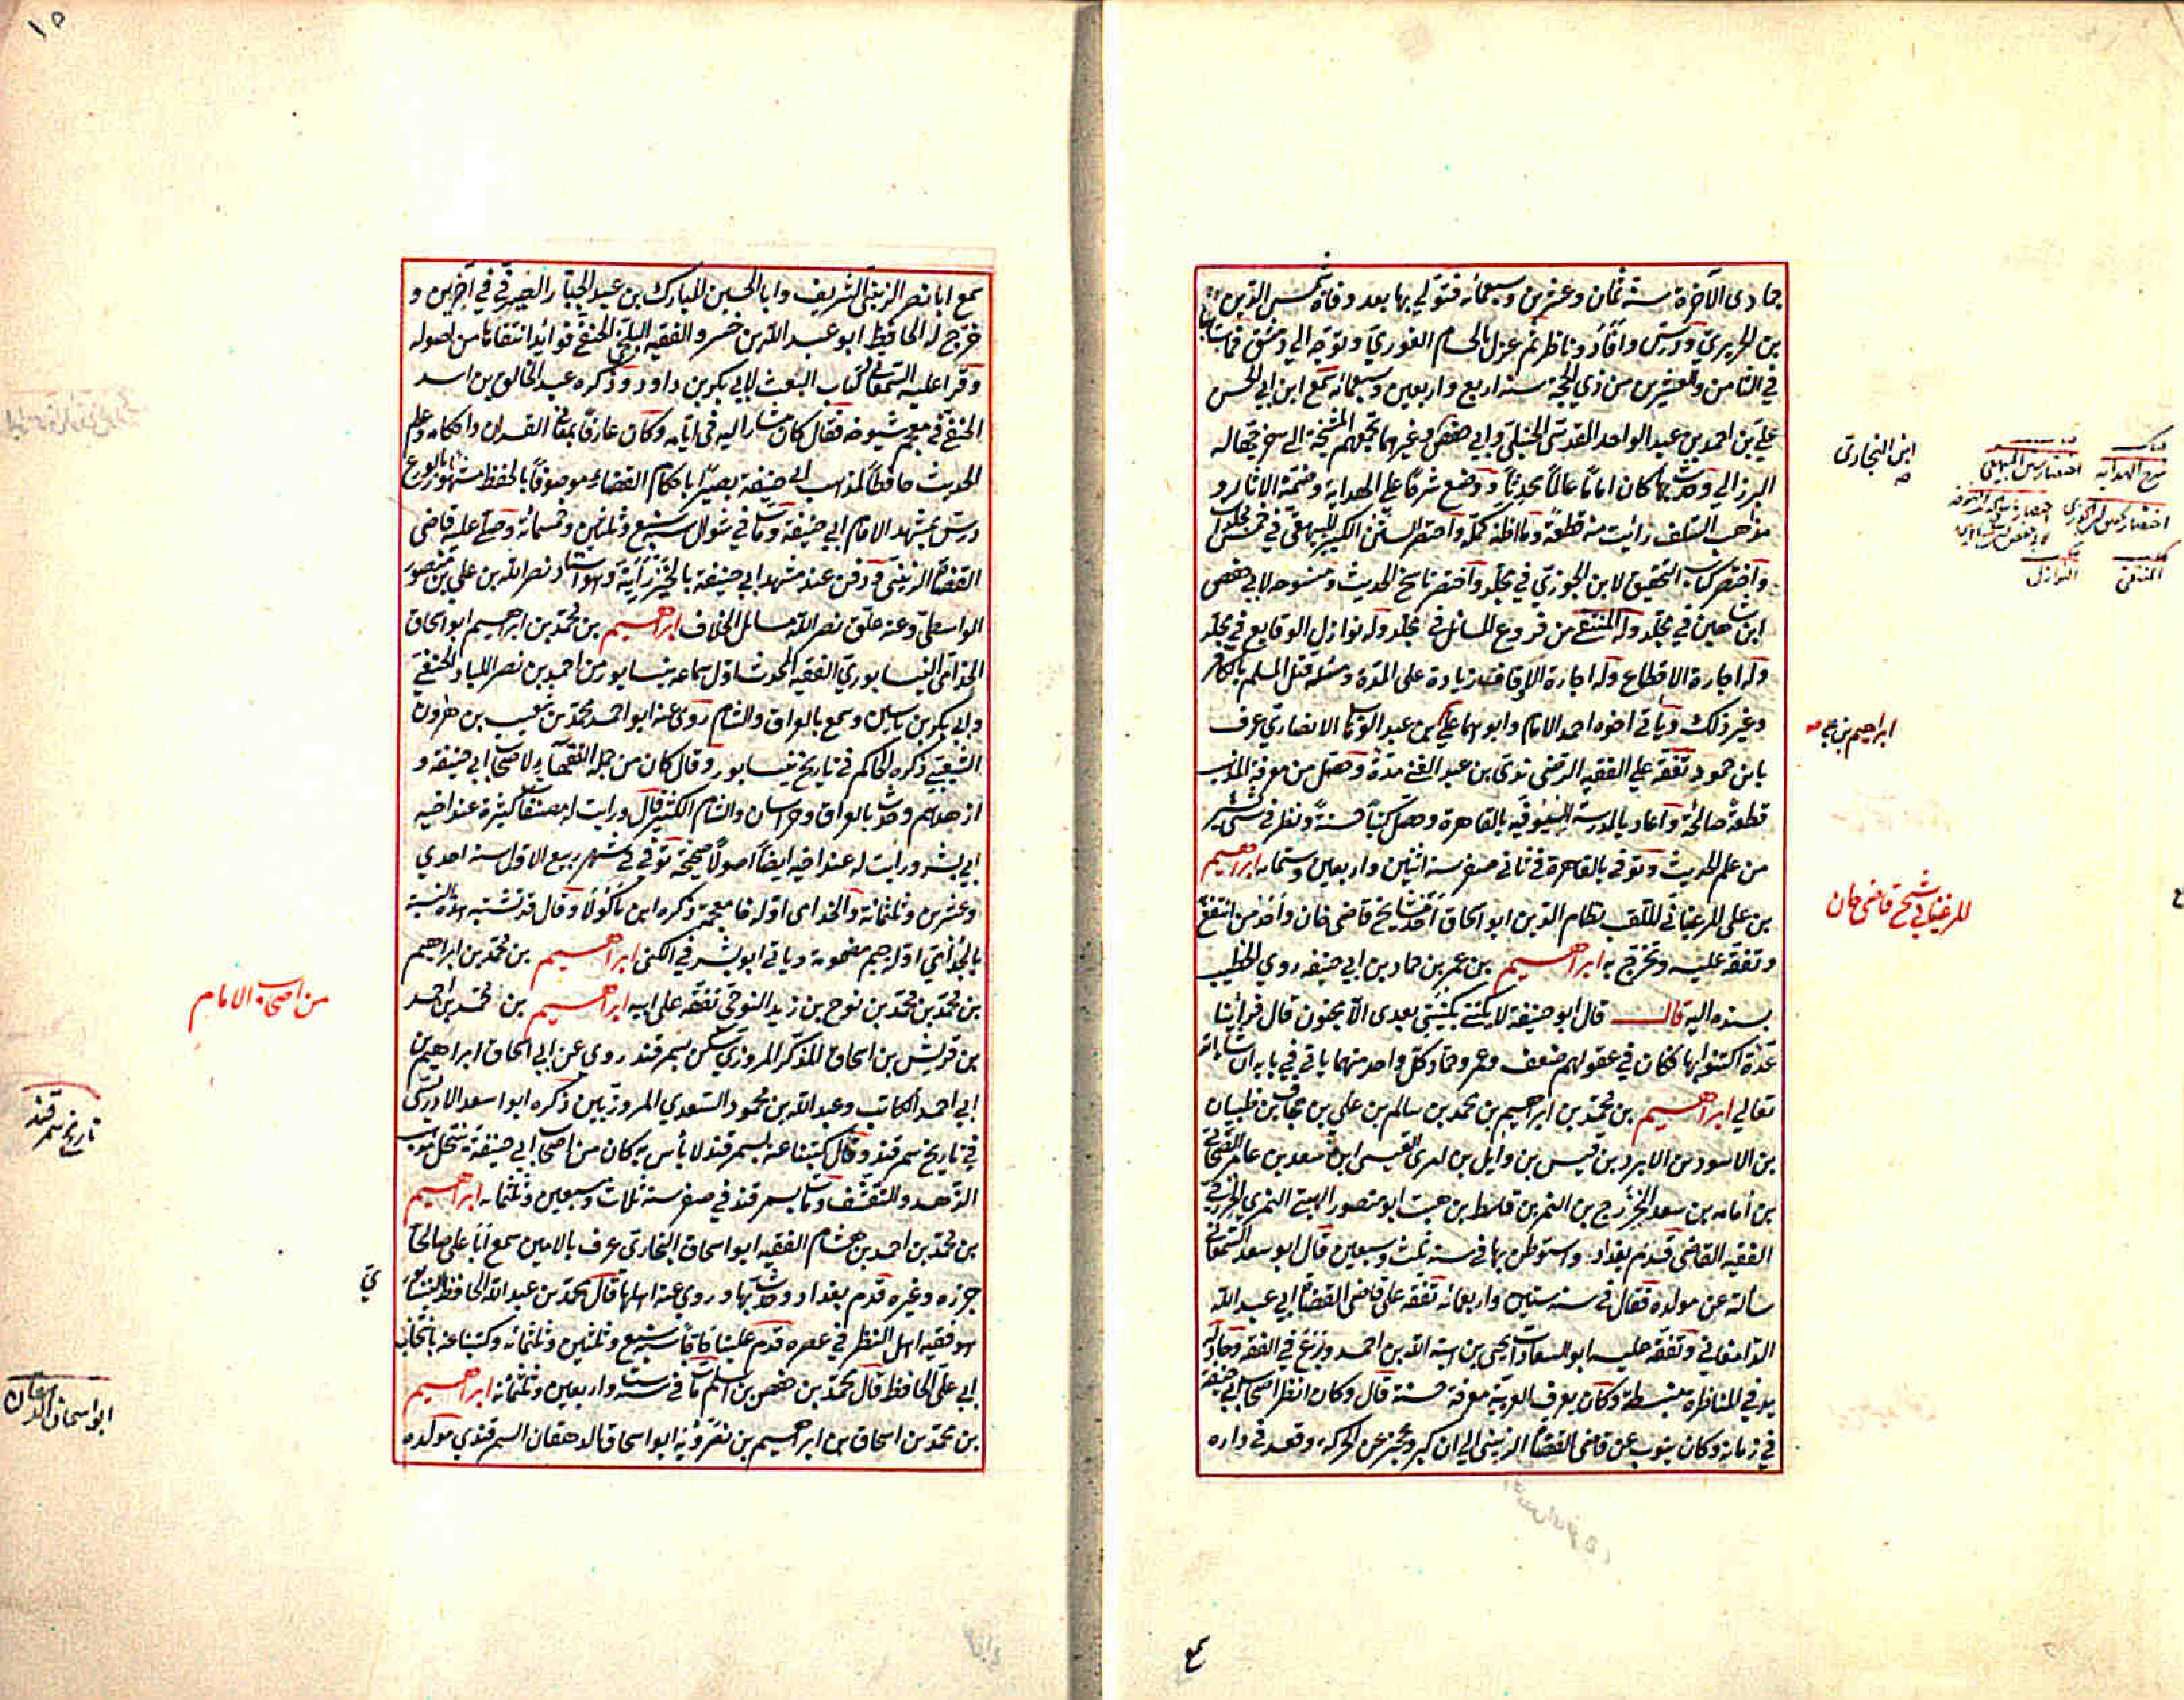 جمادى الآخرة سنة ثمان وعشرين وسبعمائة فتولي بها بعد وفاة شمس الدين
بن الحريري ودرس وأفاد وناظر ثم عزل بالحسام الغوري وتوجه الي دمشق فمات بها
في الثامن والعشرين من ذي الحجة سنة اربع واربعين وسبعمائة سمع ابن ابي الحسن
علي بن احمد بن عبد الواحد المقدسي الحنبلي وابي حفص وغيرهما تجمعهم المشيخة التي خرجها له
البرزالي وحدث بها كان اماما عالما محدثا ووضع شرحا علي الهداية وضمنه الآثار و
مذاهب السلف رأيت منه قطعة وما اظنه كمله واختصر السنن الكبير للبيهقي في خمس مجلدات
واختصر كتاب التحقيق لابن الجوزي في مجلد واختصر ناسخ الحديث ومنسوخه لابي حفص
ابن شاهين في مجلد وله المنتقى من فروع المسائل في مجلد وله نوازل الوقايع في مجلد
وله اجارة الاقطاع وله اجارة الاوقاف زيادة على المدة ومسئلة قتل المسلم بالكافر
وغير ذلك وياتي اخوه احمد الامام وابوهما علي بن عبد الوهاب الانصاري عرف
بابن حمود تفقه علي الفقيه الرضى ندى بن عبد الغني مدة وحصل من معرفة المذهب
قطعة صالحة وأعاد بالمدرسة السيوفية بالقاهرة وحصل كتبا حسنة ونظر في شئ
من علم الحديث وتوفي بالقاهرة في ثاني صفر سنة اثنين واربعين وستمائة ابراهيم
بن علي المرغيناني الملقب نظام الدين ابو اسحاق احد مشايخ قاضي خان وأحد من انتفع
وتفقه عليه وتخرج به ابراهيم بن عمر بن حماد بن ابي حنيفة روى الخطيب
بسنده اليه قال قال ابو حنيفة لا يكتني بكنيتي بعدي الا مجنون قال فرأينا
عدة اكتنوا بها فكان في عقولهم ضعف وعمر وحماد كل واحد منهما ياتي في بابه ان شاء الله
تعالي ابراهيم بن محمد بن ابراهيم بن محمد بن سالم بن علي بن بن ظبيان
بن الاسود بن الابرد بن قيس بن وايل بن امرئ القيس ابن سعد بن عامر
بن أمامه بن سعد الخزرج بن النمر بن قاسط بن هيت ابو منصور الهيتي النمري الخزرجي
الفقيه القاضي قدم بغداد واستوطن بها في سنة ثلث وسبعين قال ابو سعد السمعاني
سألته عن مولده فقال في سنة ستين واربعمائة تفقه على قاضي القضاة ابي عبد الله
الدامغاني وتفقه عليه ابو السعادات يحيى بن هبة الله بن احمد وبرع في الفقه وجاد له
يد في المناظرة منبسطة وكان يعرف العربية معرفة حسنة قال وكان انظر اصحاب ابي حنيفة
في زمانه وكان ينوب عن قاضي القضاة الزينبي الى ان كبر وعجز عن الحركة وقعد في داره
ابن البخاري
شرح الهداية
اختصار سنن البيهقي
المنتقى
النوازل
ابراهيم بن علي
المرغيناني شيخ قاضي خان
سمع
١٥
سمع ابا نصر الزينبي الشريف وابا الحسين المبارك بن عبد الجبار الصيرفي في آخرين و
خرج له الحافظ ابو عبد الله بن خسرو الفقيه البلخي الحنفي فوائد انتقاها من اصوله
وقرا عليه السمعاني كتاب البعث لابي بكر بن داود وذكره عبد الخالق بن اسد
الحنفي في معجم شيوخه فقال كان مشارا اليه في ايامه وكان عارفا بمعاني القران واحكامه وعلم
الحديث حافظا لمذهب ابي حنيفة بصيرا باحكام القضاء موصوفا بالحفظ مشهورا بالورع
درس بمشهد الامام ابي حنيفة ومات في شوال سنة سبع وثلثين وخمسمائة وصلى عليه قاضي
القضاة الزينبي ودفن عند مشهد ابي حنيفة بالخيزرانية وهو استاد نصر الله بن علي بن منصور
الواسطي وعنه علق نصر الله مسائل الخلاف ابراهيم بن محمد بن ابراهيم ابو اسحاق
الخدامي النيسابوري الفقيه المحدث اول سماعه بنيسابور من احمد بن نصر اللباد الحنفي
وابي بكر بن ياسين وسمع بالعراق والشام روى عنه ابو احمد محمد بن شعيب بن هرون
الشعيبي ذكره الحاكم في تاريخ نيسابور وقال كان من جلة الفقهاء لاصحاب ابي حنيفة و
ازهدهم وحدث بالعراق وخراسان والشام الكثير قال ورايت له مصنفات كثيرة عند اخيه
ابي بشر ورايت له عند اخيه ايضا اصولا صحيحة توفي في شهر ربيع الاول سنة احدي
وعشرين وثلثمائة والخدامي اوله خا معجمة ذكره ابن ماكولا وقال قد تشتبه هذه النسبة
بالجذامي اوله جيم مضمومة وياتي ابو بشر في الكنى ابراهيم بن محمد بن ابراهيم
بن محمد بن محمد بن نوح بن زيد النوحي تفقه على ابيه ابراهيم بن محمد بن احمد
بن قريش بن اسحاق المذكر المروزي سكن بسمرقند روى عن ابي اسحاق ابراهيم بن
ابي احمد الكاتب وعبد الله بن محمود السعدي المروزيين ذكره ابو سعد الادريسي
في تاريخ سمرقند وقال كتبنا عنه بسمرقند لا بأس به كان من اصحاب ابي حنيفة ينتحل مذهب
الزهد والتقشف ومات بسمرقند في صفر سنة ثلاث وسبعين وثلثمائة ابراهيم
بن محمد بن احمد بن هشام الفقيه ابو اسحاق البخاري عرف بالامين سمع أبا علي صالحا
جزره وغيره قدم بغداد وحدث بها وروى عنه اهلها قال محمد بن عبد الله الحافظ النيسابوري
هو فقيه اهل النظر في عصره قدم علينا حاجا سنة سبع وثلثين وثلثمائة وكتبنا عنه بانتخاب
ابي علي الحافظ قال محمد بن حفص بن اسلم مات في سنة ست واربعين وثلثمائة ابراهيم
بن محمد بن اسحاق بن ابراهيم بن نصرويه ابو اسحاق الدهقان السمرقندي مولده
من اصحاب الامام
تاريخ سمرقند
ابو اسحاق الدهقان